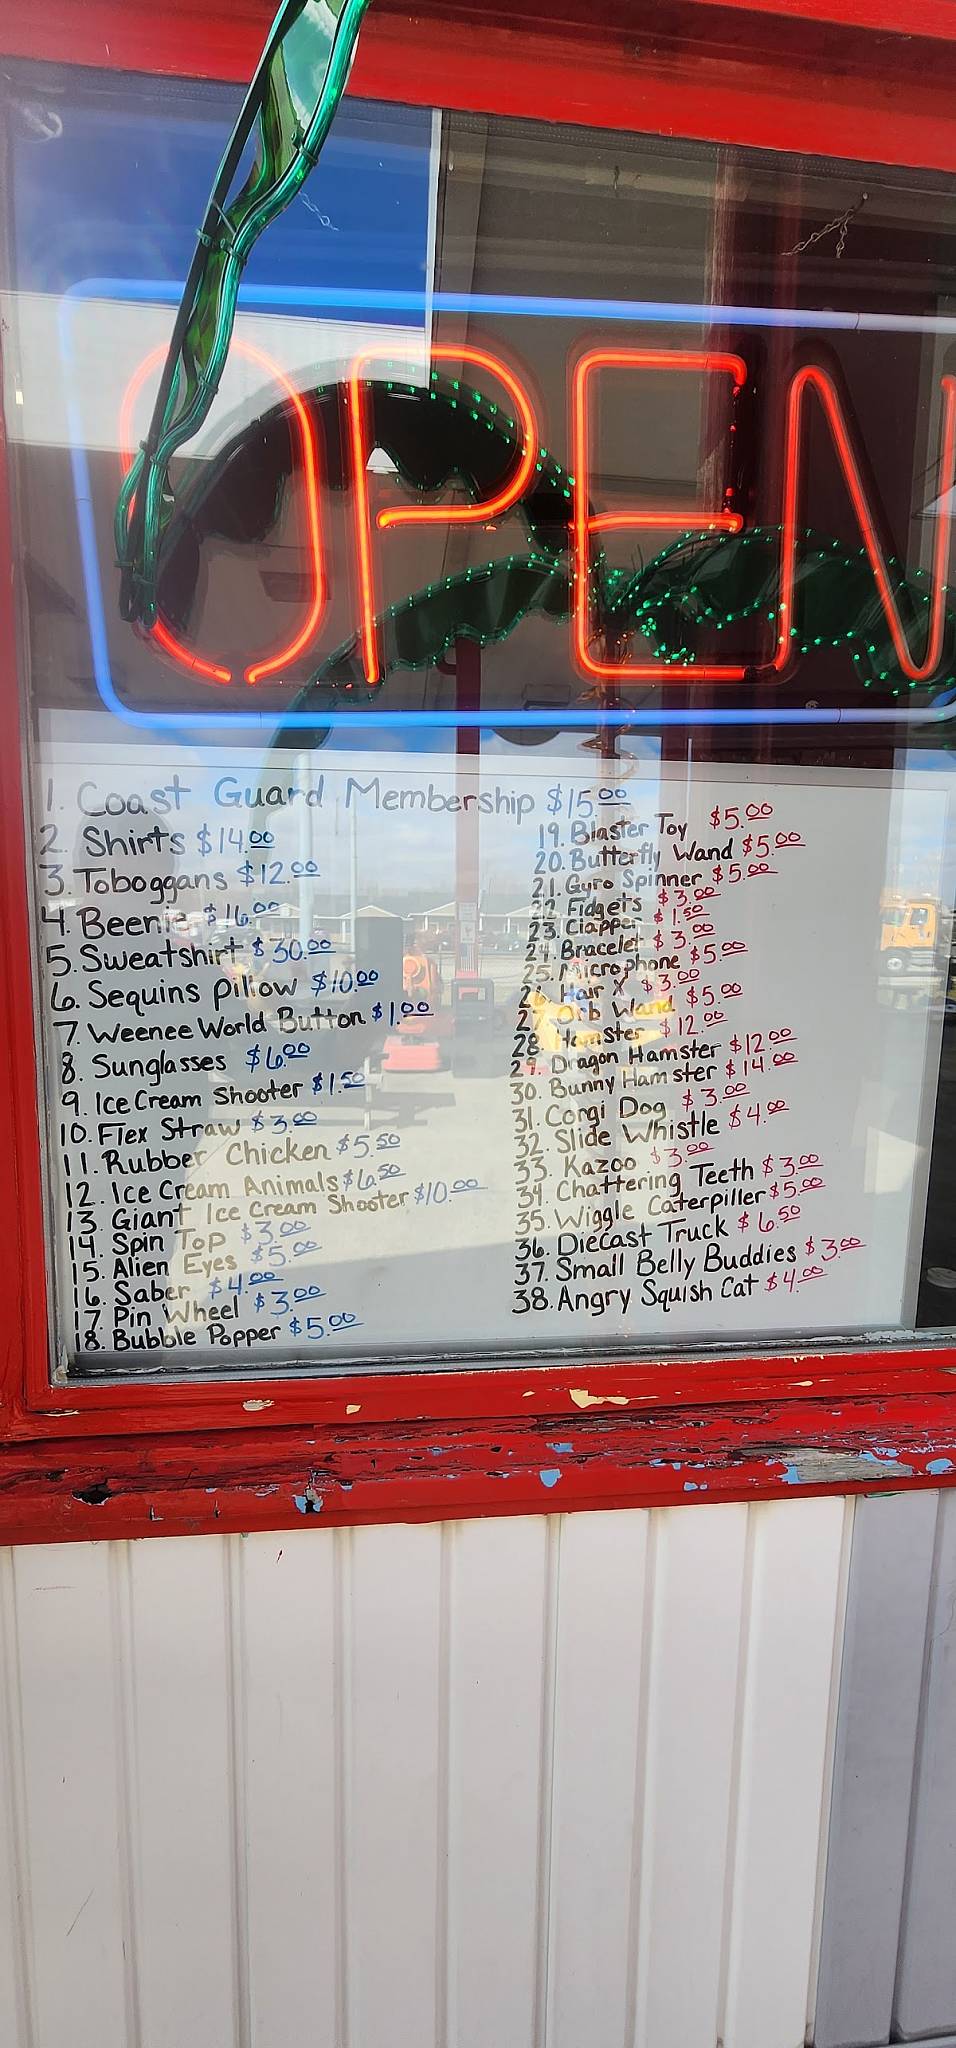 OPEN
1. Coast Guard Membership $15.00
2. Shirts $14.00
3. Toboggans $12.00
4. Beenie $16.00
5. Sweatshirt $30.00
6. Sequins pillow $10.00
7. Weenee World Button $1.00
8. Sunglasses $6.00
9. Ice Cream Shooter $1.50
10. Flex Straw $3.00
11. Rubber Chicken $5.50
12. Ice Cream Animals $6.50
13. Giant Ice Cream Shooter $10.00
14. Spin Top $3.00
15. Alien Eyes $5.00
16. Saber $4.00
17. Pin Wheel $3.00
18. Bubble Popper $5.00
19. Blaster Toy $5.00
20. Butterfly Wand $5.00
21. Gyro Spinner $5.00
22. Fidgets $3.00
23. Clapper $1.50
24. Bracelet $3.00
25. Microphone $5.00
26. Hair X $3.00
27. Orb Wand $5.00
28. Hamster $12.00
29. Dragon Hamster $12.00
30. Bunny Hamster $14.00
31. Corgi Dog $3.00
32. Slide Whistle $4.00
33. Kazoo $3.00
34. Chattering Teeth $3.00
35. Wiggle Caterpiller $5.00
36. Diecast Truck $6.50
37. Small Belly Buddies $3.00
38. Angry Squish Cat $4.00